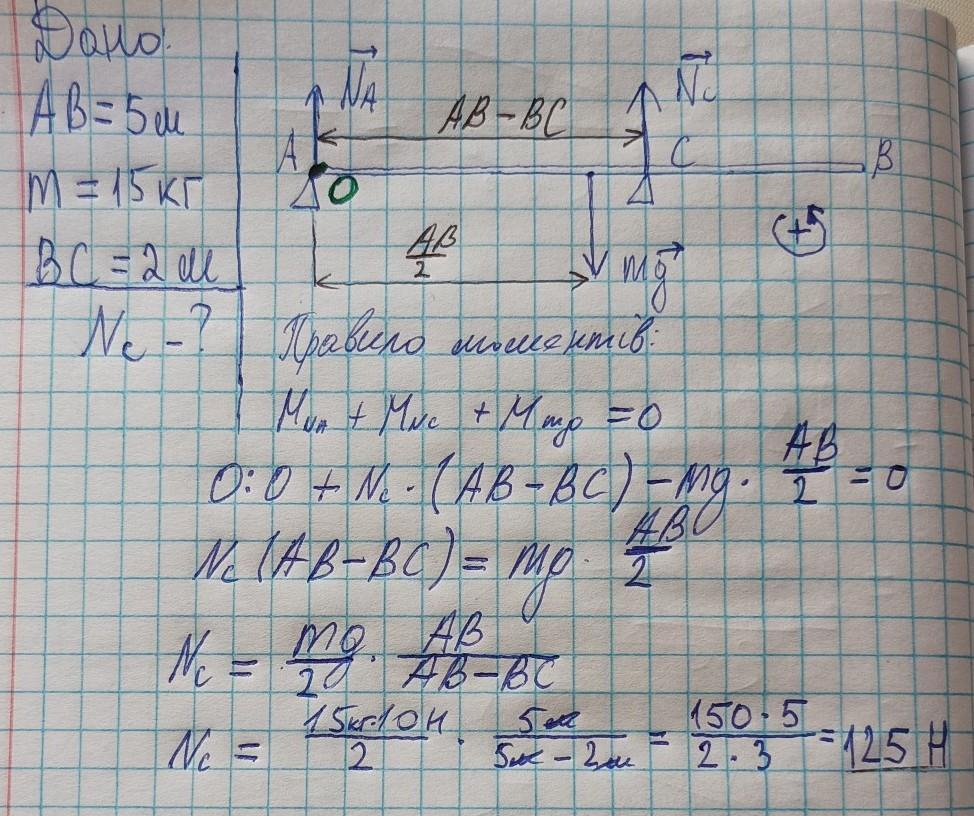 Дано:
AB = 5 м
m = 15 кг
BC = 2 м
Nc - ?
N⃗A
N⃗c
AB - BC
A
C
B
O
AB/2
mg⃗
+
Правило моментів:
M_NA + M_Nc + M_mg = 0
O: 0 + Nc · (AB - BC) - mg · AB/2 = 0
Nc (AB - BC) = mg · AB/2
Nc = mg/2 · AB/(AB - BC)
Nc = 15кг·10Н/2 · 5м/(5м - 2м) = 150·5/(2·3) = 125 Н